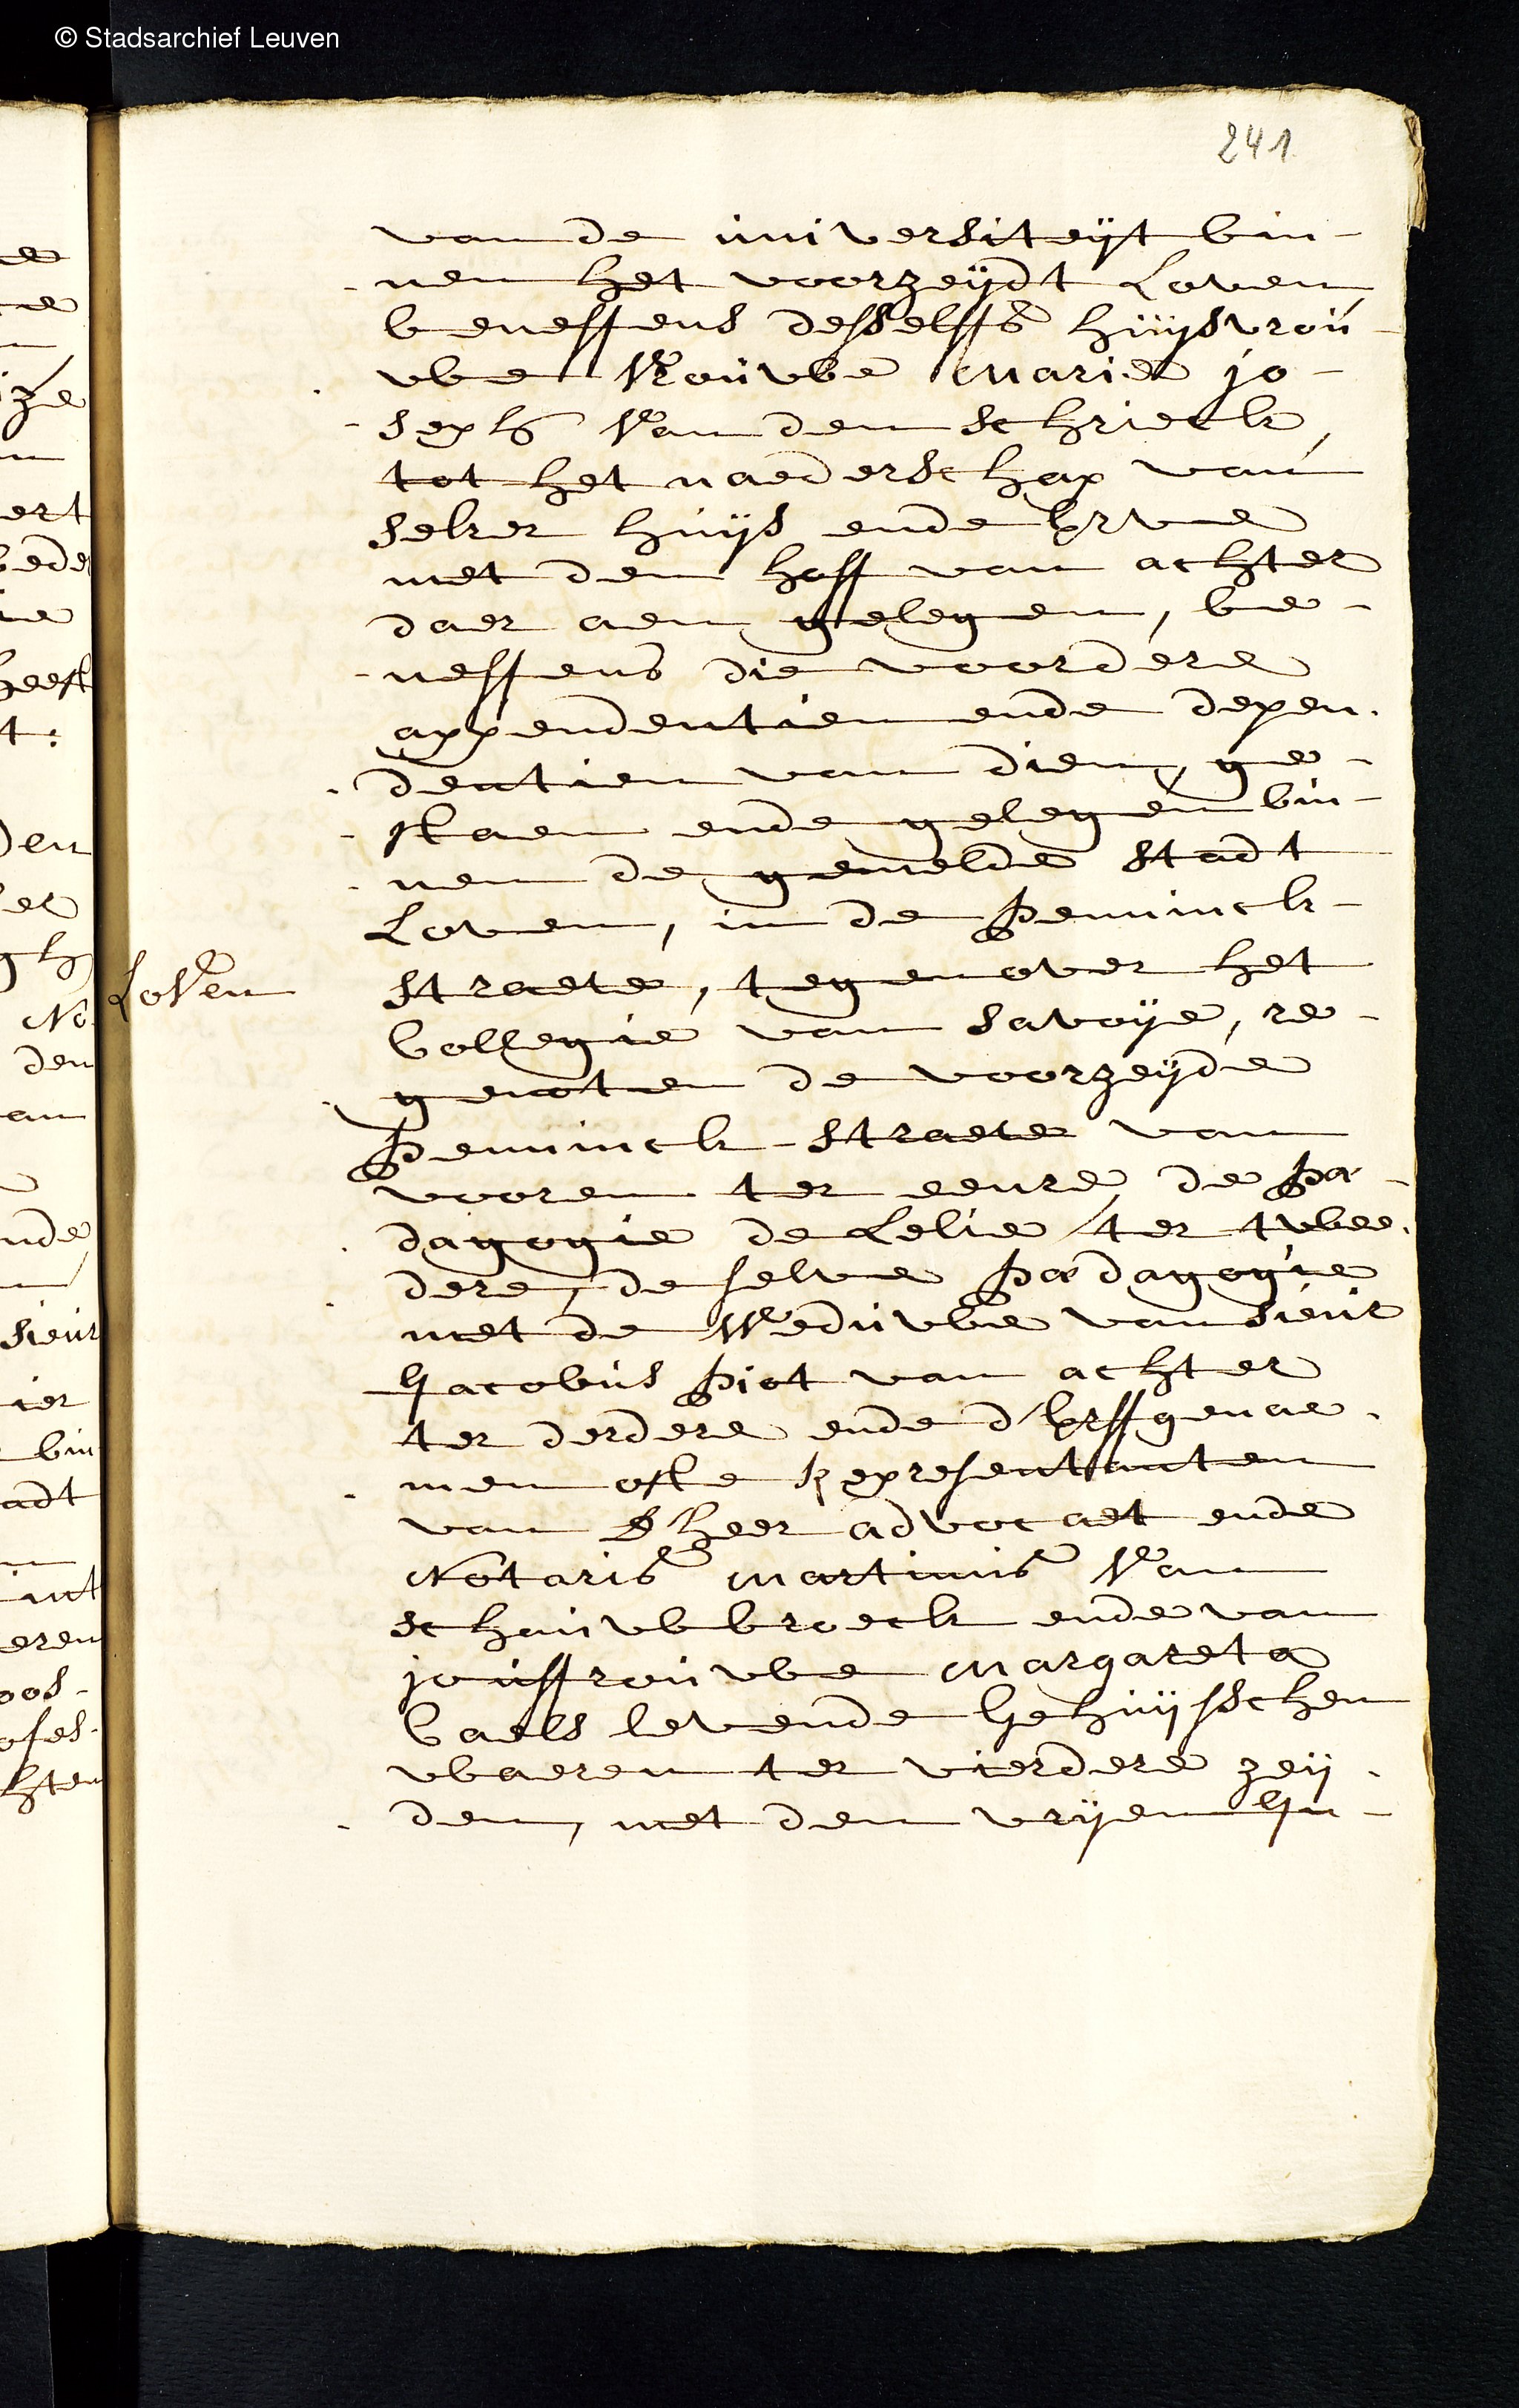 © Stadsarchief Leuven
241
van de universiteijt bin-
-nen het voorzeijdt Loven
beneffens desselffs huijsvrou-
-we vrouwe Marie jo-
-seph Van den schrieck,
tot het naederschap van
seker huijs ende erve
met den hoff van achter
daer aen gelegen, be-
-neffens die voordere
appendentien ende depen-
-dentien van dien, ge-
-staen ende gelegen bin-
-nen de gemelde stadt
Loven, in de penninck-
Loven
straete, tegenover het
Collegie van Savoye, re-
-genoten de voorzeijde
penninck-straete van
vooren ter eenre, de pæ-
-dagogie de Lelie ter twee-
-dere, de selve pædagogie
met de Weduwe van sieur
Jacobus piot van achter
ter derdere ende d'erffgenae-
-men ofte representanten
van d'heer advocaet ende
Notaris Martinus Van
schouwbroeck ende van
jouffrouwe Margareta
Caels levende Gehuijsschen
waeren ter vierdere zeij-
-den, met den vrijen In-